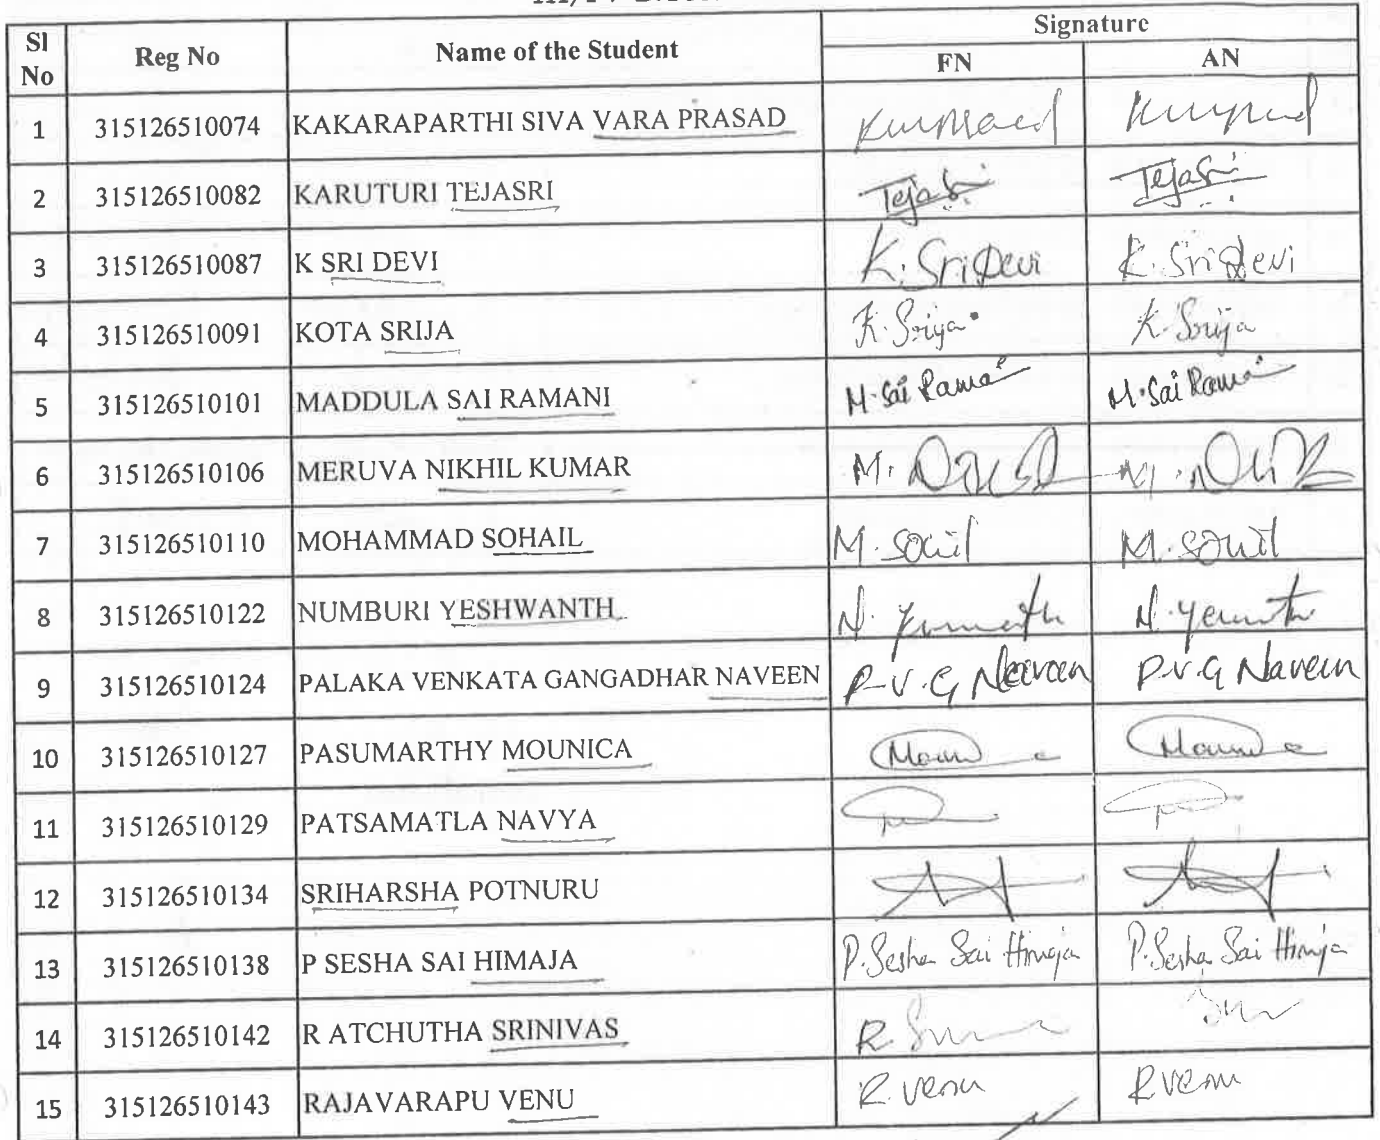 Signature
Sl No Reg No Name of the Student FN AN
1 315126510074 KAKARAPARTHI SIVA VARA PRASAD
2 315126510082 KARUTURI TEJASRI Tejasri Tejasri
3 315126510087 K SRI DEVI K. Sri Devi K. Sri Devi
4 315126510091 KOTA SRIJA K. Srija K. Srija
5 315126510101 MADDULA SAI RAMANI M. Sai Ramani M. Sai Ramani
6 315126510106 MERUVA NIKHIL KUMAR
7 315126510110 MOHAMMAD SOHAIL M. Sohail M. Sohail
8 315126510122 NUMBURI YESHWANTH
9 315126510124 PALAKA VENKATA GANGADHAR NAVEEN P.V.G Naveen P.V.G Naveen
10 315126510127 PASUMARTHY MOUNICA
11 315126510129 PATSAMATLA NAVYA
12 315126510134 SRIHARSHA POTNURU
13 315126510138 P SESHA SAI HIMAJA P. Sesha Sai Himaja P. Sesha Sai Himaja
14 315126510142 R ATCHUTHA SRINIVAS
15 315126510143 RAJAVARAPU VENU R. Venu R Venu